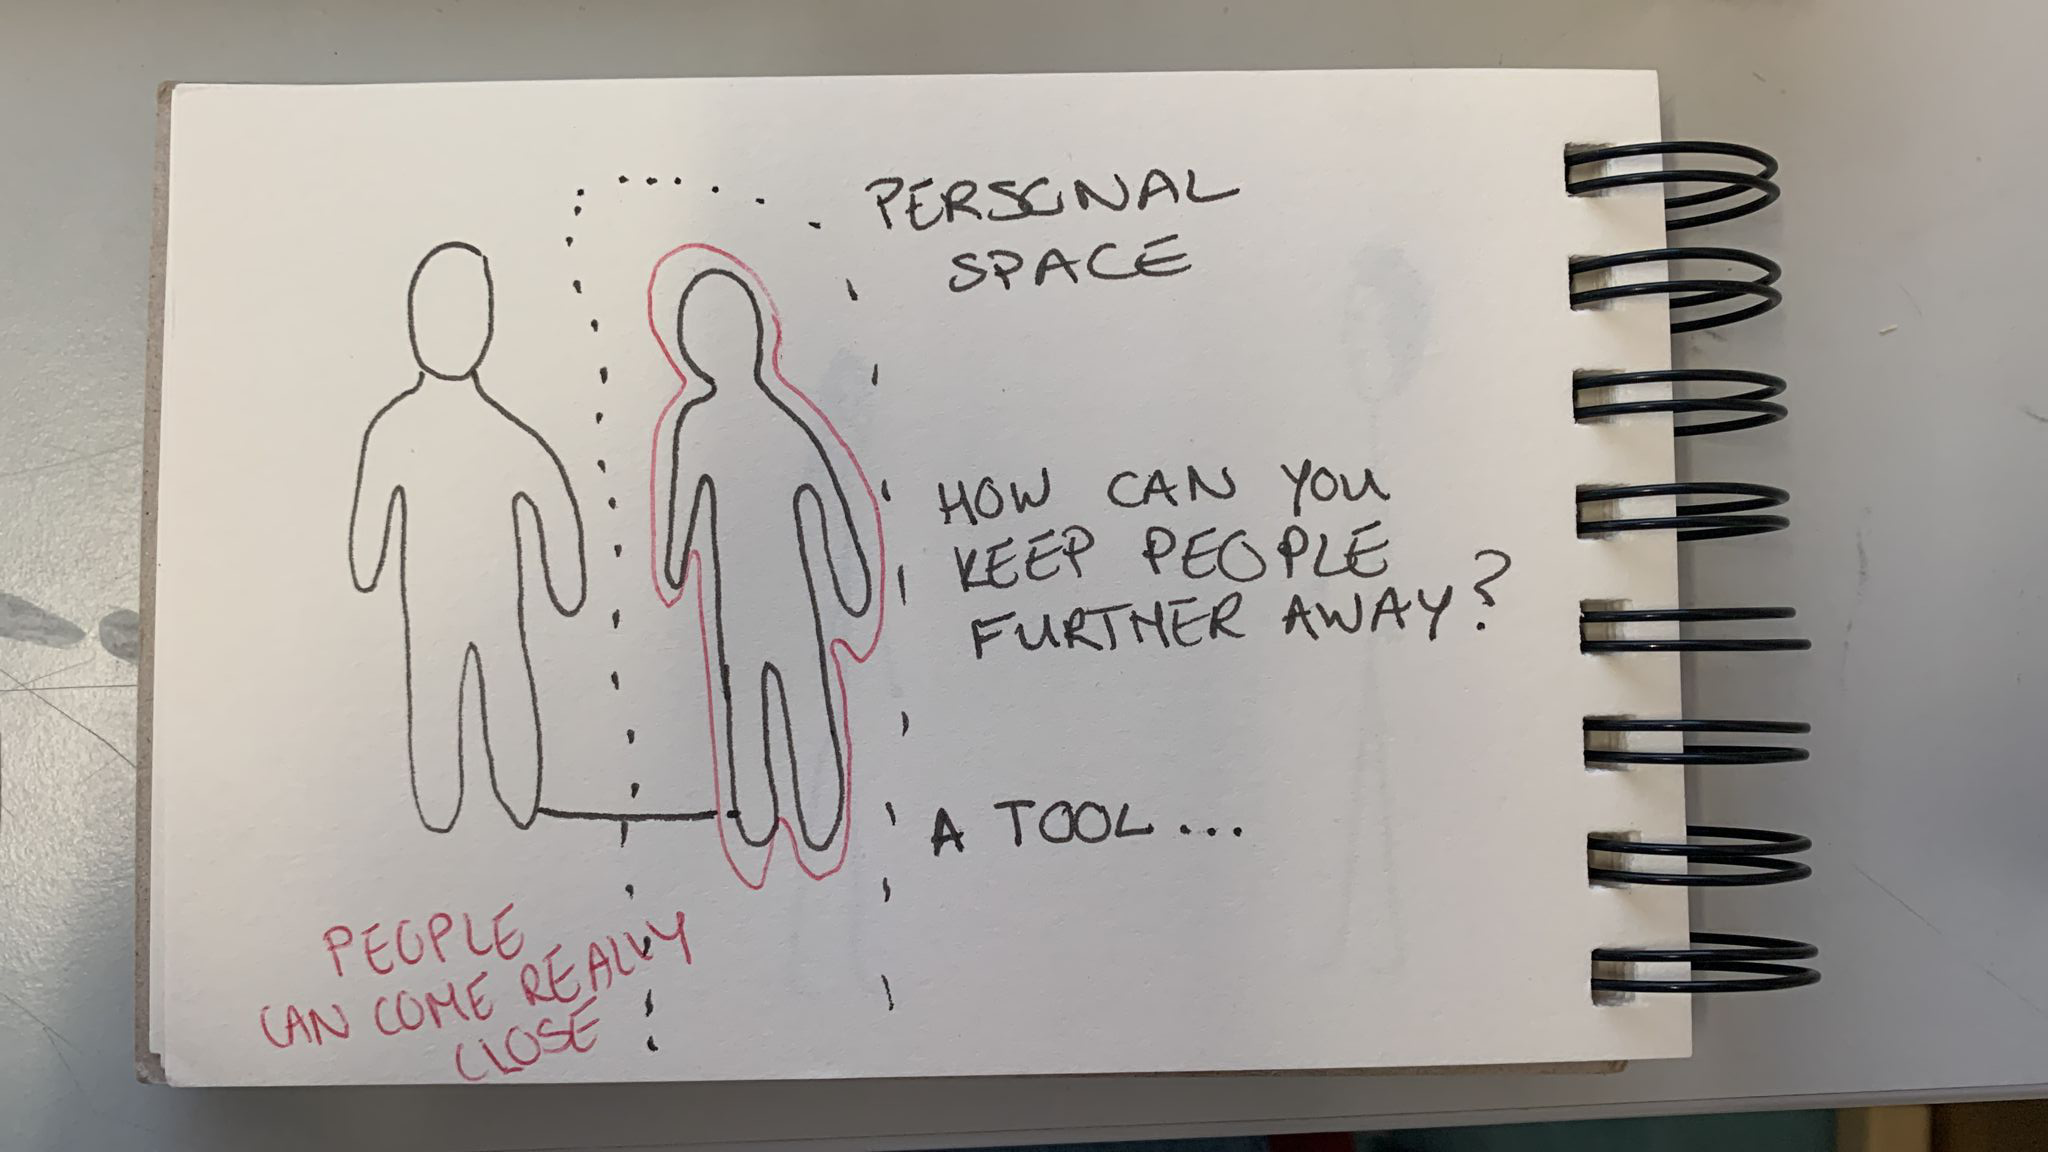 PERSONAL
SPACE
HOW CAN YOU
KEEP PEOPLE
FURTHER AWAY?
A TOOL...
PEOPLE
CAN COME REALLY
CLOSE